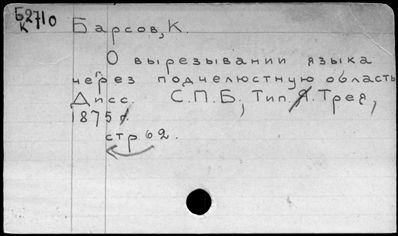 Б2710
К
Барсов, К.
О вырезывании языка
через подчелюстную область
Дисс. С.П.Б, Тип. Я. Трея,
1875 г.
стр 62.